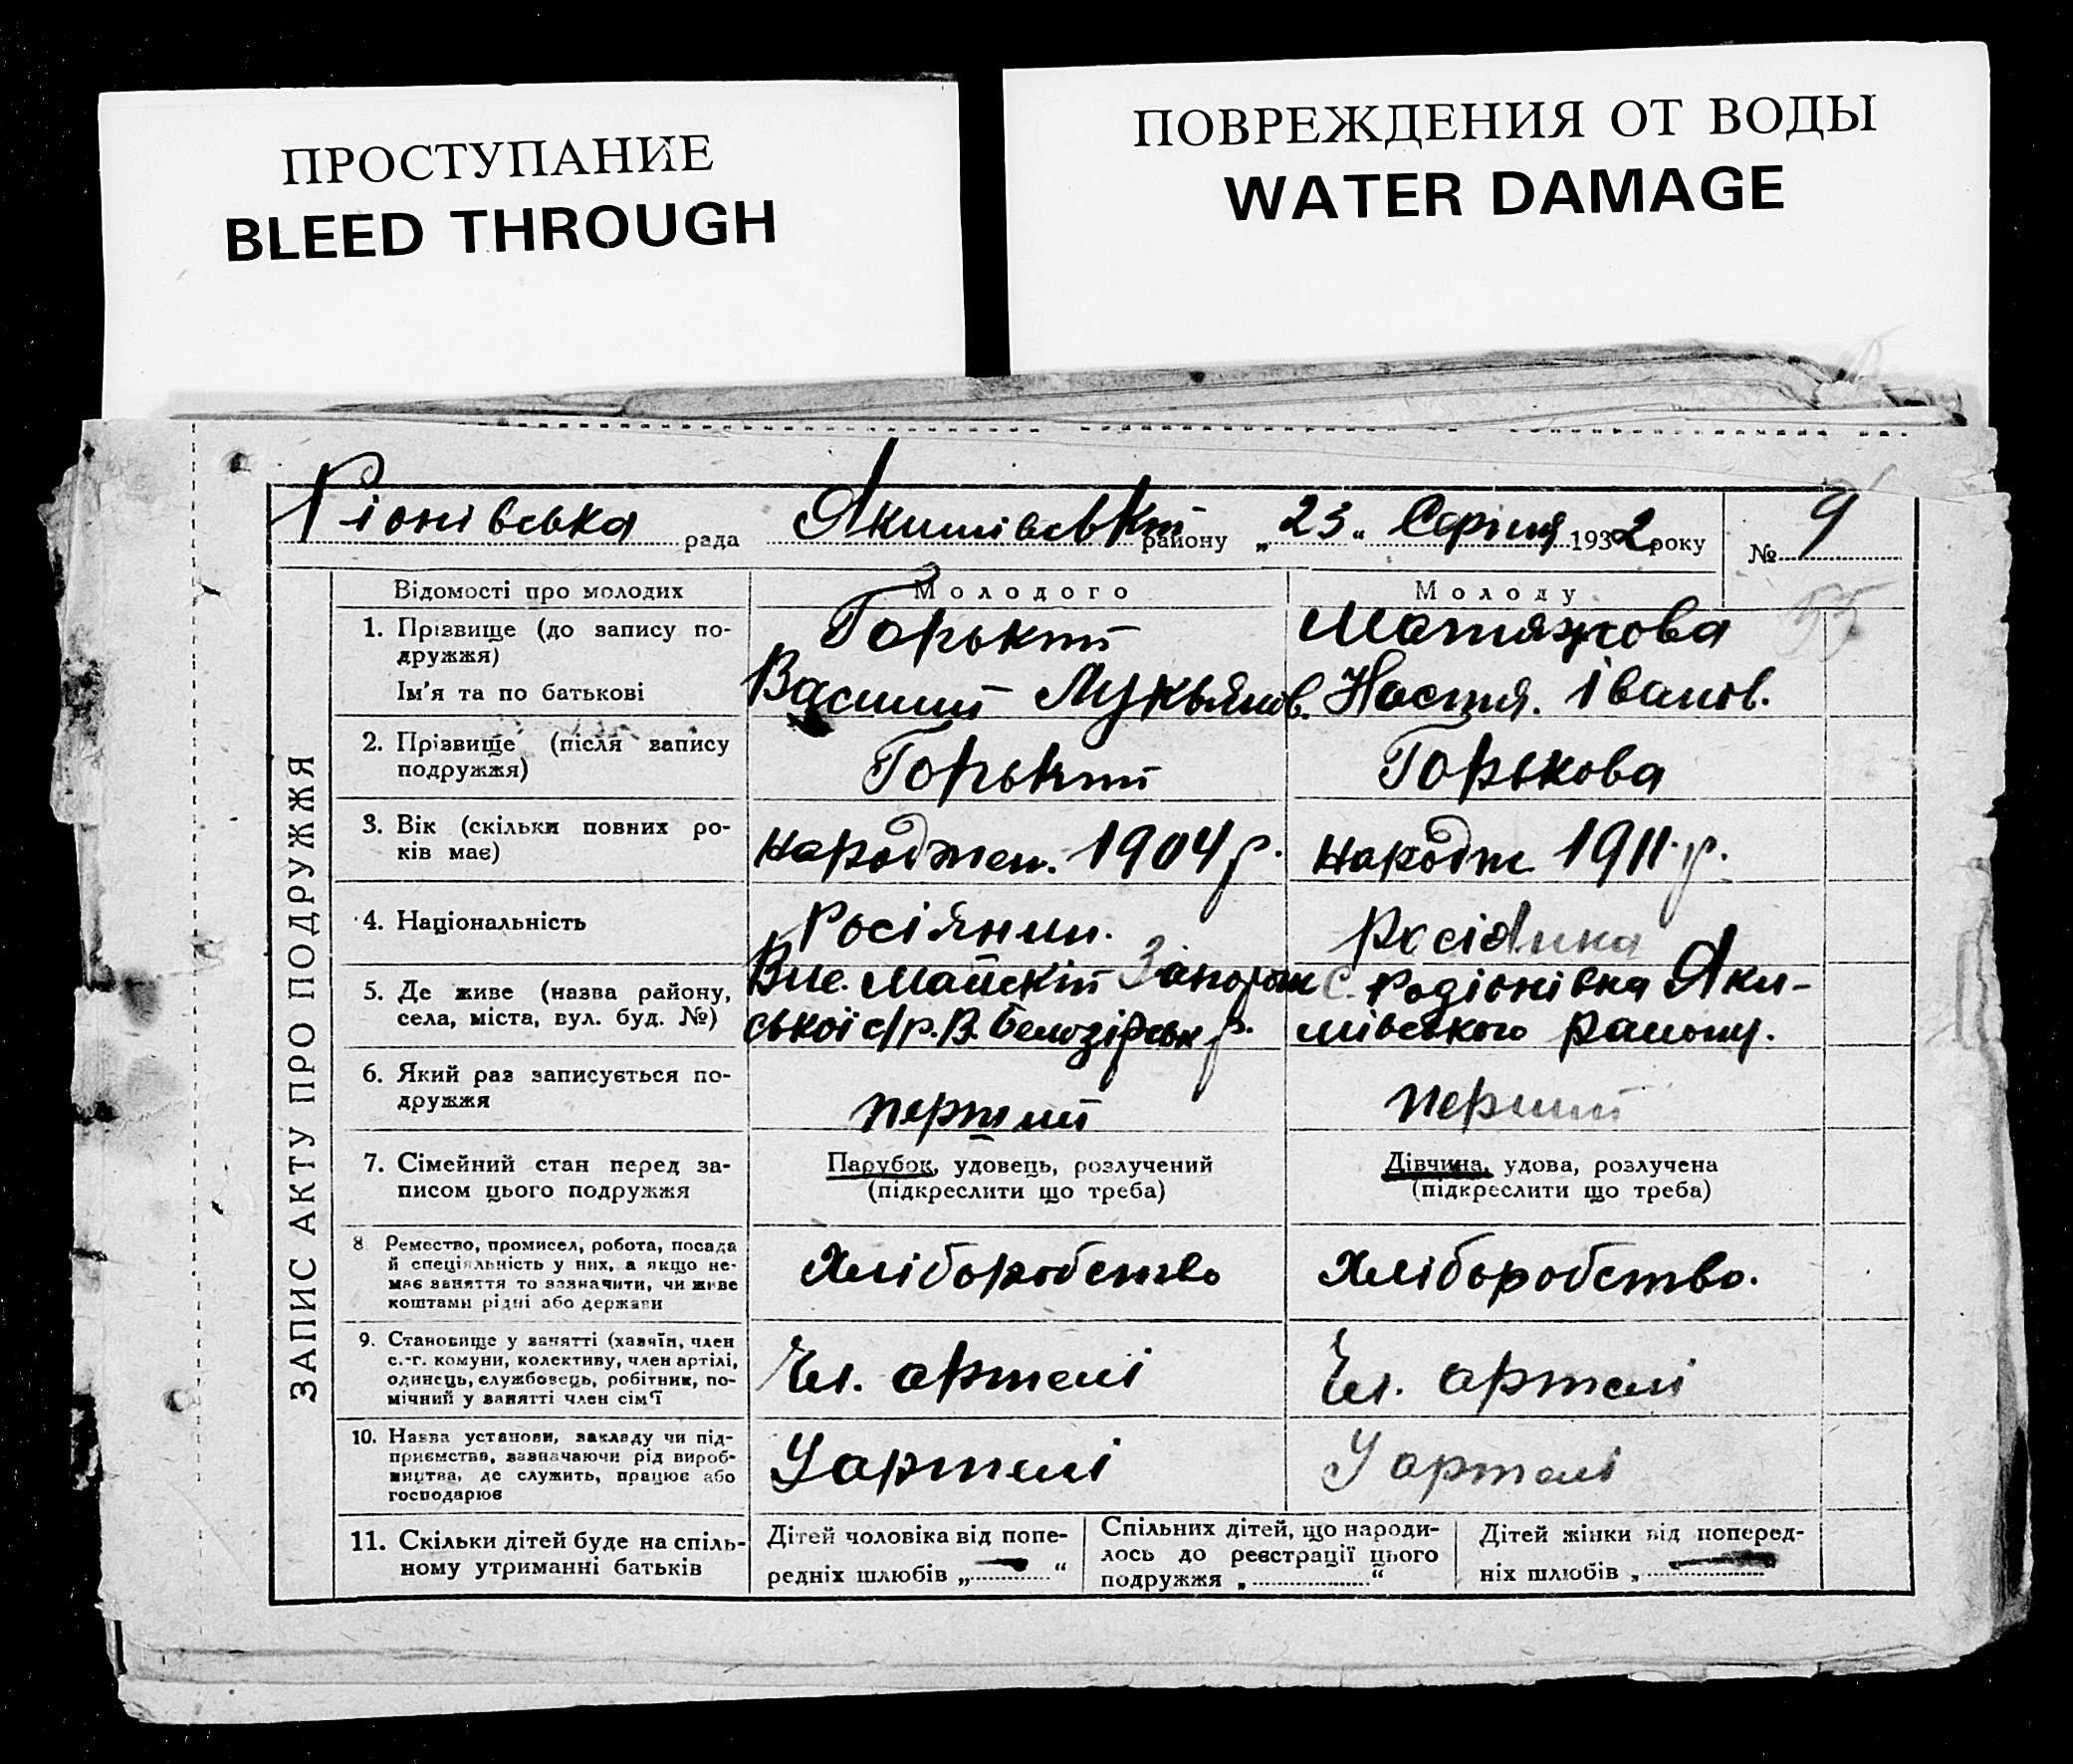 ПРОСТУПАНИЕ
BLEED THROUGH
ПОВРЕЖДЕНИЯ ОТ ВОДЫ
WATER DAMAGE
Ріонівська рада Якимівський району „23„ Серпня 1932 року № 9
55
ЗАПИС АКТУ ПРО ПОДРУЖЖЯ
Відомості про молодих Молодого Молоду
1. Прізвище (до запису по-
дружжя)
Горький Матяжова
Ім'я та по батькові Василий Лукьянов. Настя. Іванов.
2. Прізвище (після запису
подружжя)
Горький Горькова
3. Вік (скільки повних ро-
ків має)
Народжен. 1904 р. Народж 1911 р.
4. Національність Росіянин. Росіянка
5. Де живе (назва району,
села, міста, вул. буд. №)
Вис. Майский Запорож С. Родіонівка Яки-
ської с/р. В. Белозірськ р. мівського району.
6. Який раз записується по-
дружжя
перший перший
7. Сімейний стан перед за-
писом цього подружжя
Парубок, удовець, розлучений
(підкреслити що треба)
Дівчина, удова, розлучена
(підкреслити що треба)
8 Ремество, промисел, робота, посада
й спеціяльність у них, а якщо не-
має заняття то зазначити, чи живе
коштами рідні або держави
Хліборобство Хліборобство.
9. Становище у занятті (хазяїн, член
с.-г. комуни, колективу, член артілі,
одинець, службовець, робітник, по-
мічний у занятті член сім'ї
Чл. артелі Чл. артелі
10. Назва установи, закладу чи під-
приємства, зазначаючи рід вироб-
ництва, де служить, працює або
господарює
У артелі У артелі
11. Скільки дітей буде на спіль-
ному утриманні батьків
Дітей чоловіка від попе-
редніх шлюбів „ — “
Спільних дітей, що народи-
лось до реєстрації цього
подружжя „ “
Дітей жінки від поперед-
ніх шлюбів „ — “